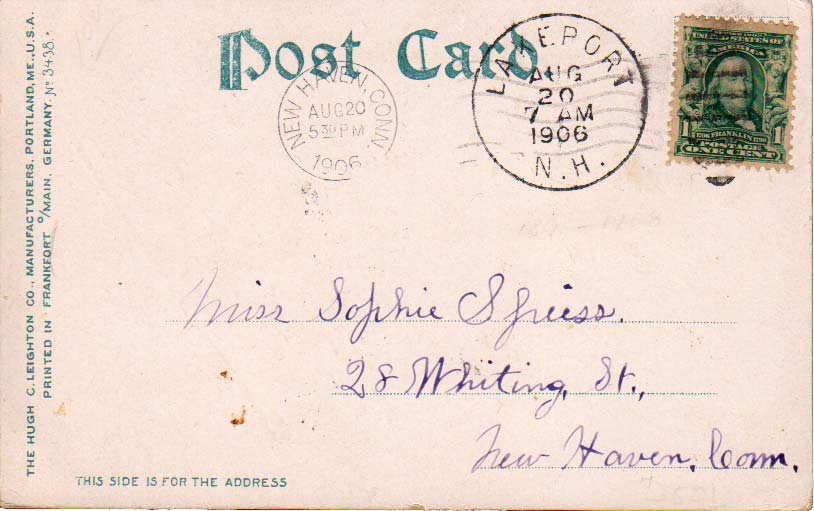 Post Card
NEW HAVEN, CONN
AUG 20
5 30 PM
1906
LAKEPORT
AUG
20
7 AM
1906
N.H.
UNITED STATES OF
AMERICA
1 1706 FRANKLIN 1790 1
POSTAGE
ONE CENT
Miss Sophie Spiess.
28 Whiting, St.,
New Haven, Conn.
THIS SIDE IS FOR THE ADDRESS
THE HUGH C. LEIGHTON CO., MANUFACTURERS, PORTLAND, ME., U.S.A.
PRINTED IN FRANKFORT o/MAIN, GERMANY. No 3438.